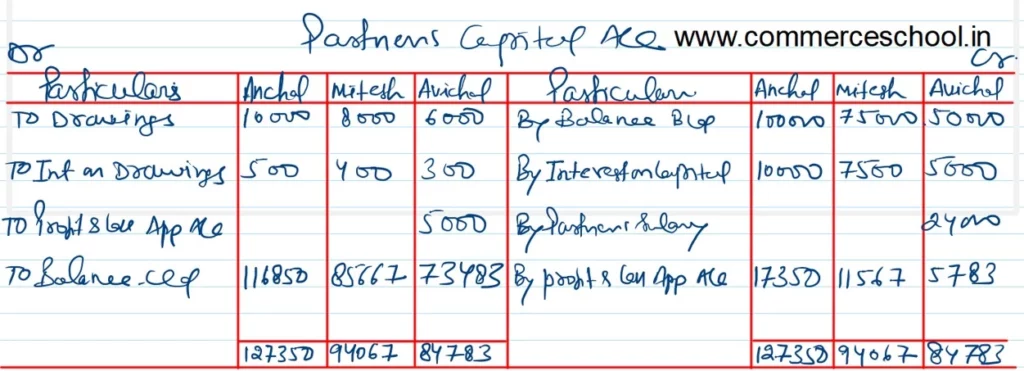 Partners Capital A/c www.commerceschool.in
Dr Cr.
Particulars Anchal Mitesh Avichal Particulars Anchal Mitesh Avichal
To Drawings 10000 8000 6000 By Balance B/d 100000 75000 50000
To Int on Drawings 500 400 300 By Interest on Capital 10000 7500 5000
To Profit & Loss App A/c 5000 By Partners Salary 24000
To Balance c/d 116850 85667 73483 By profit & Loss App A/c 17350 11567 5783
127350 94067 84783 127350 94067 84783